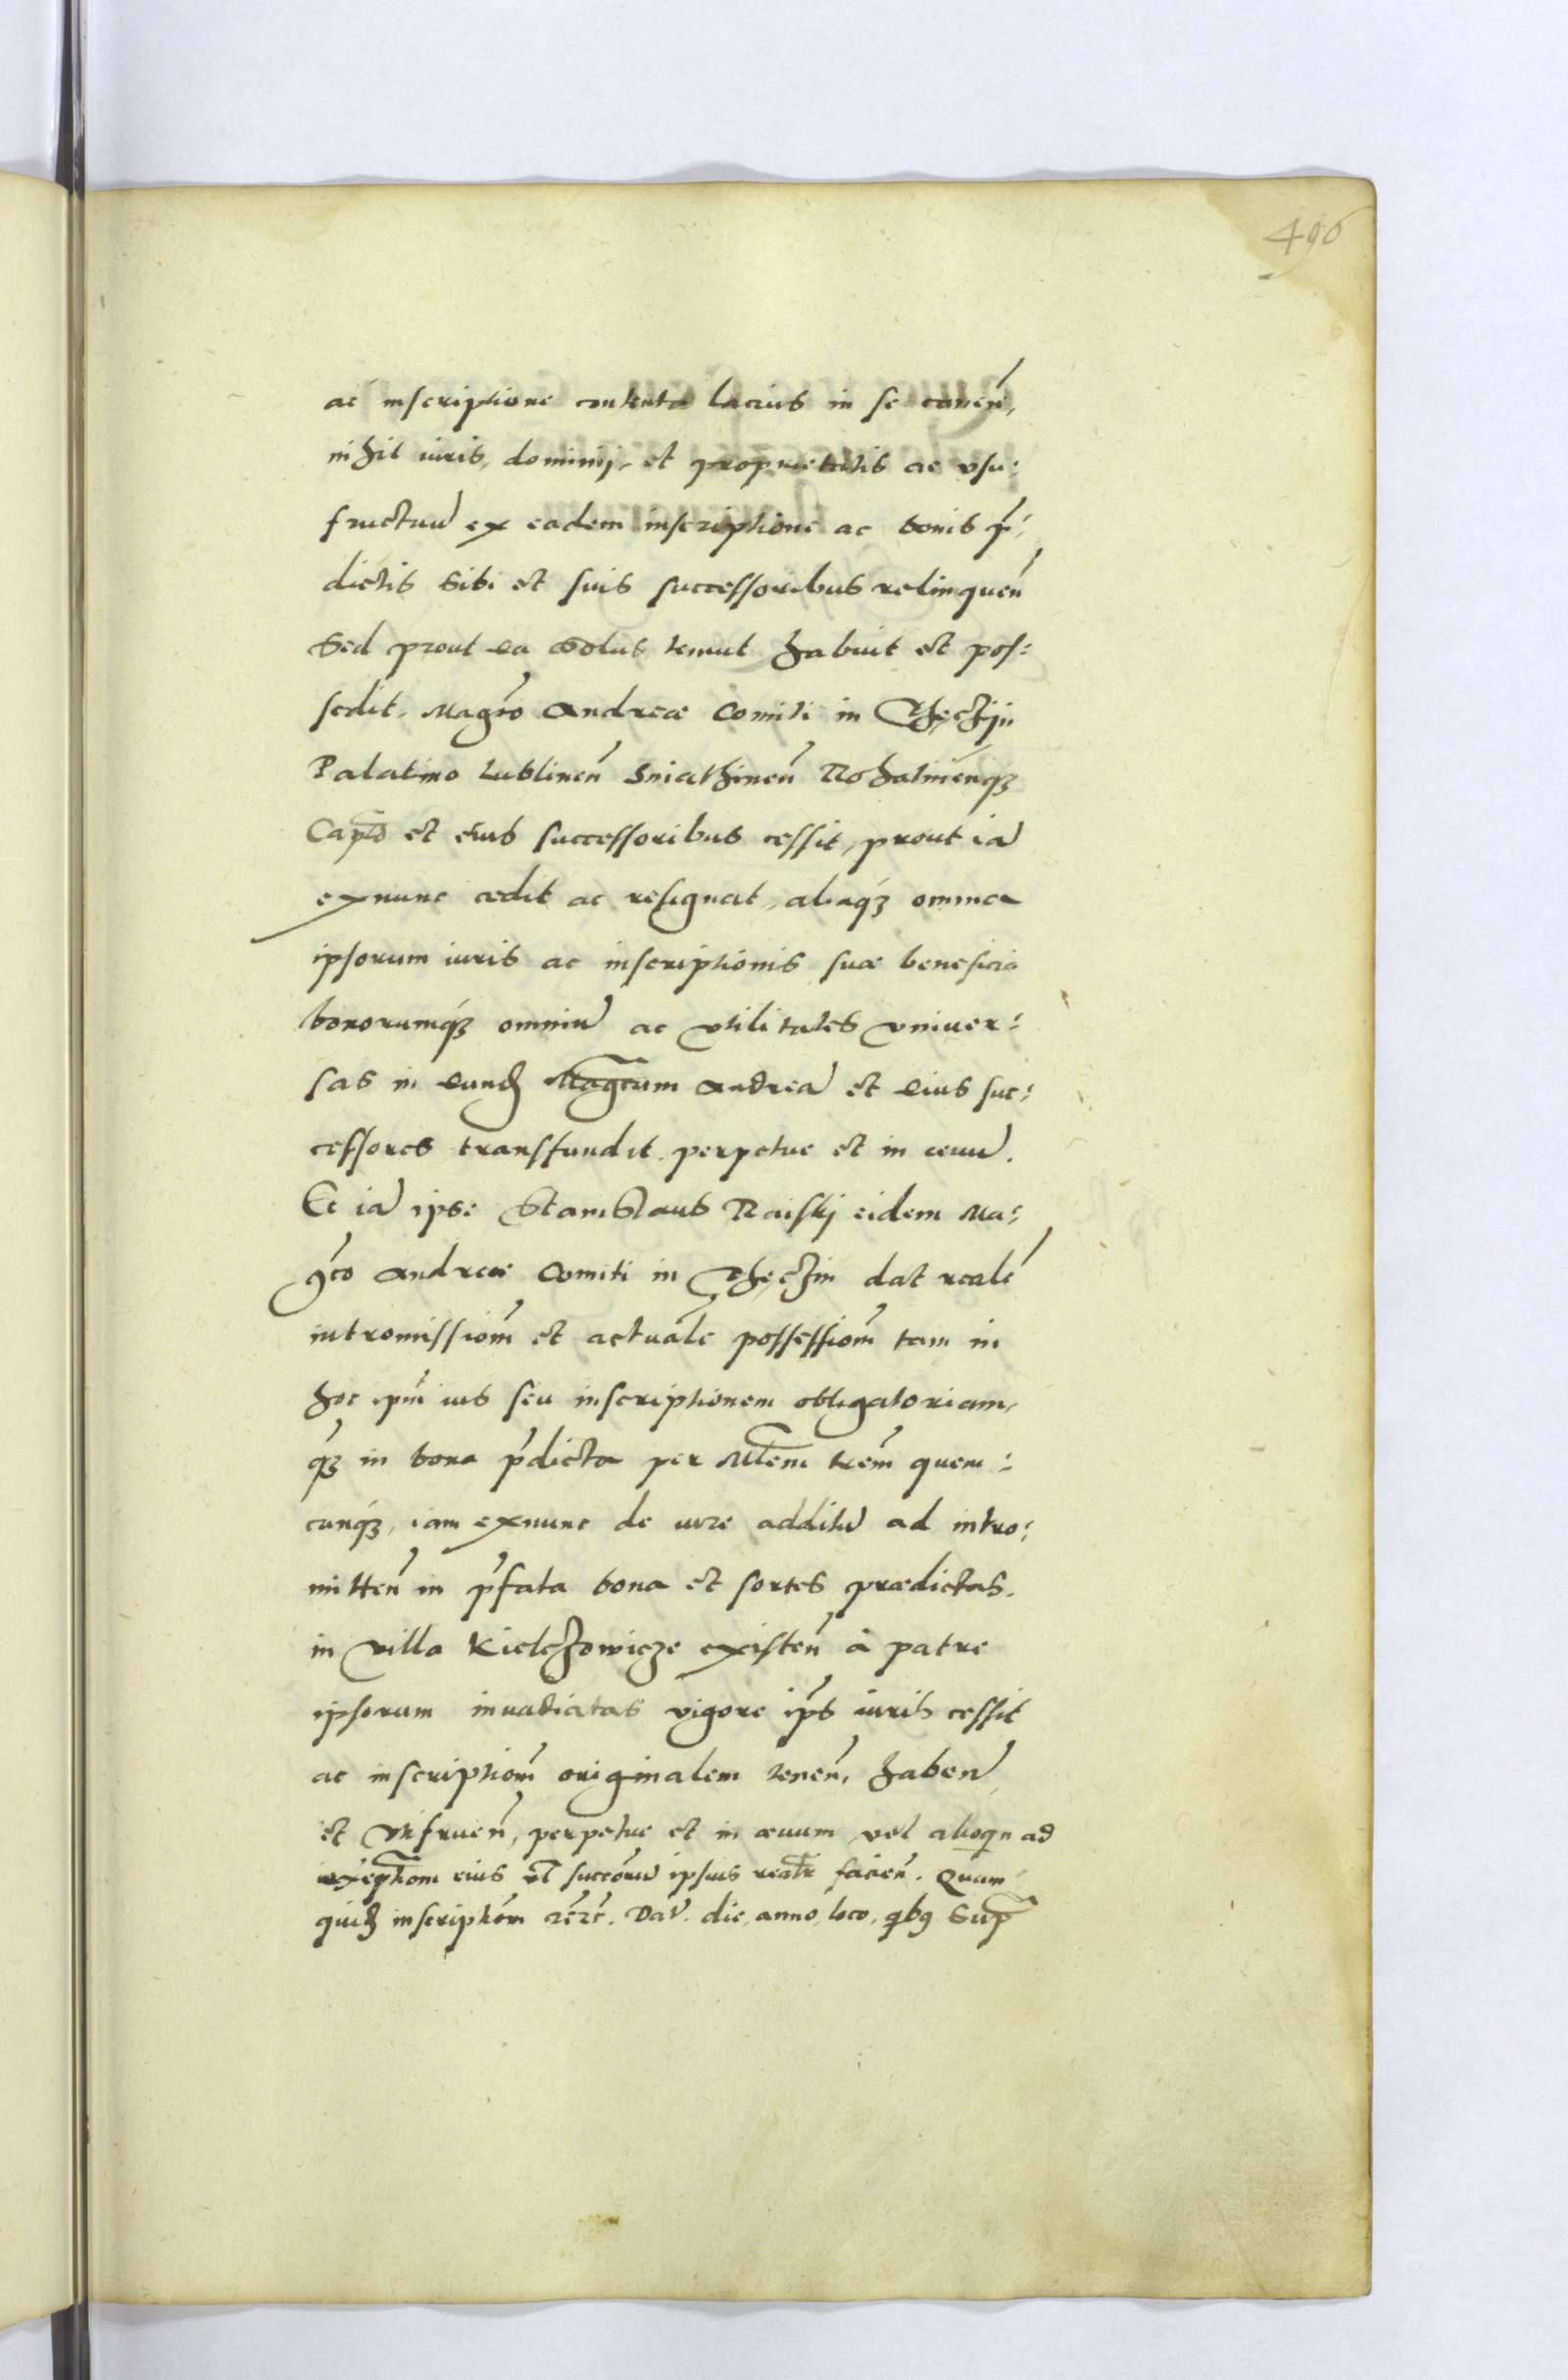 490
ac inscriptione contenta lacius in se conen̄,
nihil iuris, dominij, et proprietatis ac vsu:
fructuū ex eadem inscriptione ac bonis p̄:
dictis Sibi et suis successoribus relinquen̄
Sed prout ea Solus tenuit habuit et pos:
sedit. Magc̄o Andreæ Comiti in Thęczijn
Palatino Lublinen̄ Sniathinen̄ Rohatinen̄qꝫ
Capt̄o et eius successoribus cessit, prout iā
exnunc cedit ac resignat, aliaqꝫ omnia
ipsorum iuris ac inscriptionis suæ beneficia
bonorumqꝫ omniū ac vtilitates vniuer:
sas in eundꝫ Magc̄um Andreā et eius suc:
cessores transfundit perpetue et in æuū.
Et iā ipse Stanislaus Raiskj eidem Ma:
gc̄o Andreæ Comiti in Thęczin dat realē
intromissionē et actualē possessionē tam in
hoc ipm̄ ius seu inscriptionem obligatoriam,
qꝫ in bona p̄dicta per Mt̄em trem̄ quem:
cunqꝫ, iam exnunc de iure additū ad intro:
mitten̄ in p̄fata bona et sortes prædictas.
in villa Kielczowicze existen̄ à patre
ipsorum inuadiatas vigore ips̄ iuris cessit
ac inscriptionē originalem tenen̄, haben̄
et vtifruen̄, perpetue et in æuum vel alioqn̄ ad
exemptionē eius vl̄ succorū ipsius realr̄ facien̄. Quam
quidꝫ inscriptionē rc̄rc̄. Dat̄. die, anno, loco, qbꝯ Supr̄